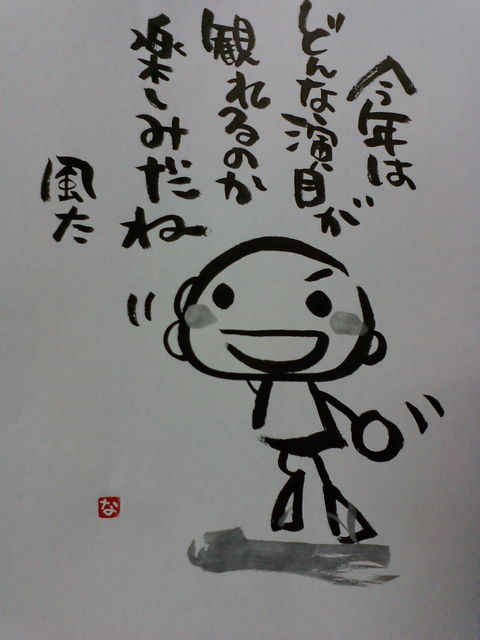 今年は
どんな演目が
観れるのか
楽しみだね
風た
な